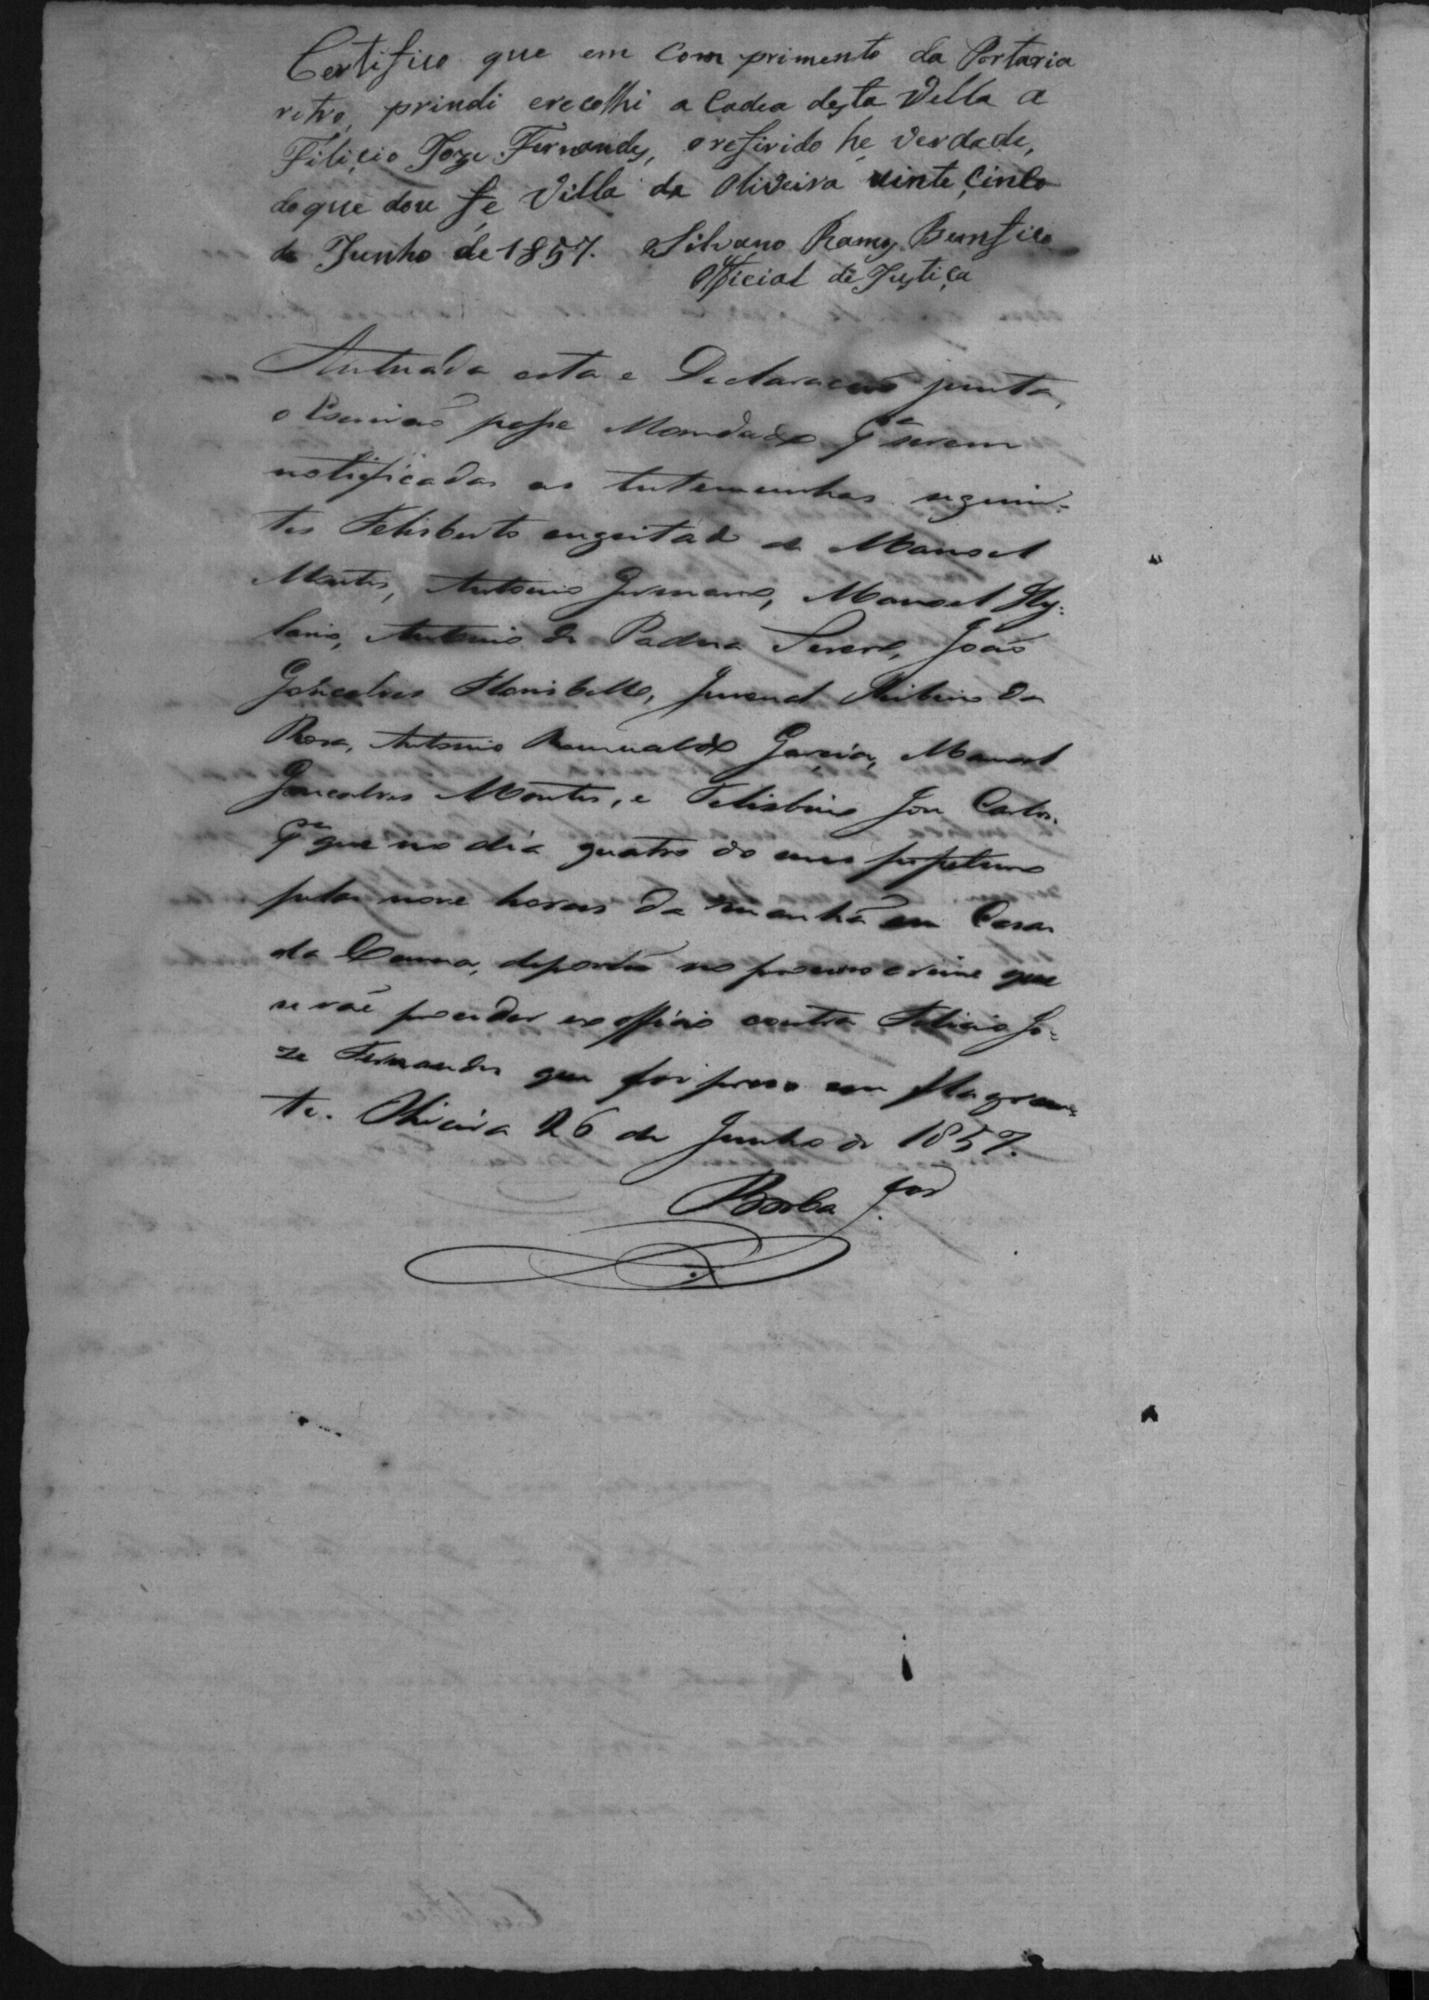 Certifico que em Comprimento da Portaria
retro, prindi erecolhi a Cadea desta Villa a
Filicio Joze Fernandes, orefirido he verdade,
doque dou fe Villa da Oliveira vinte Cinco
de Junho de 1857. Silvano Ramos Bemfica
Official de Justiça
Autuada esta e Declaração junta,
o Escrivaõ passe Mandado pª serem
notificadas as testemunhas seguin-
tes Felisberto engeitado de Manoel
Montes, Antonio Germano, Manoel Hy-
lario, Antonio de Padua Severo, João
Gonçalves, Juvenal Ribeiro da
Rosa, Antonio Romualdo Garcia, Manoel
Gonçalves Montes, e Felisbino Joze Carlos.
pª que no dia quatro do mez
pelas nove horas da manhã em Casa
da Camara, deporem no processo crime que
se vae proceder ex officio contra Felicio Jo-
ze Fernandes que foi preso em flagran-
te. Oliveira 26 de Junho de 1857.
Borba
Certifico